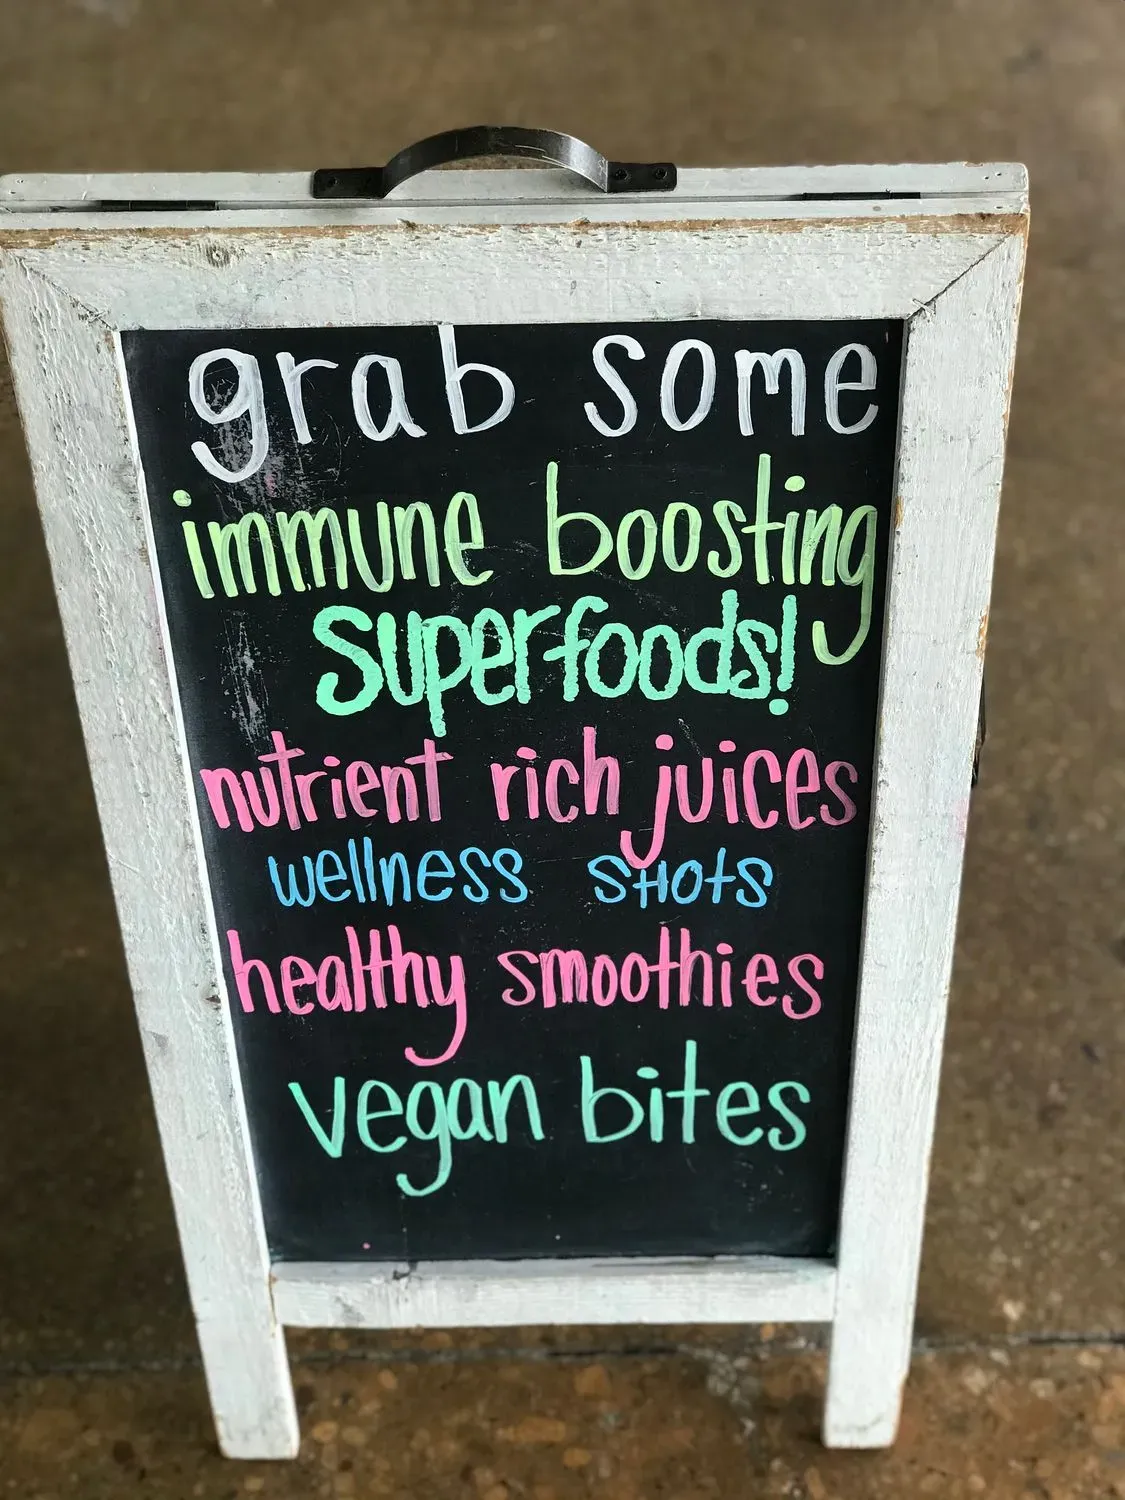 grab some
immune boosting
superfoods!
nutrient rich juices
wellness SHotS
healthy smoothies
vegan bites